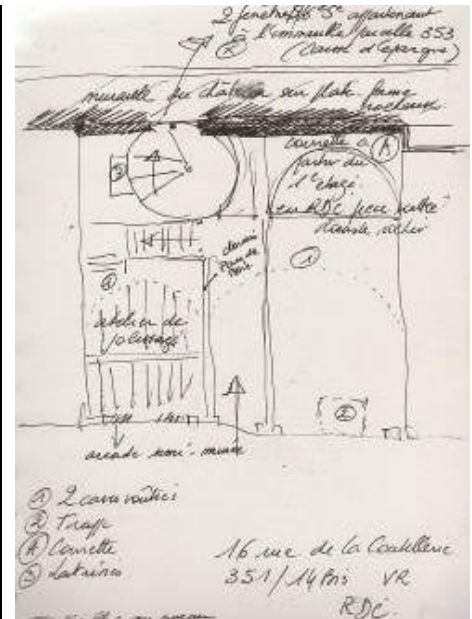 2 fenêtres XVIe S° appartenant
à l'immeuble parcelle 353
(Caisse d'épargne)
muraille du château sur plate forme
rocheuse
courette à (A)
partir du
1er étage
en RDC
1
3
atelier de
polissage
2
arcade semi-murée
① 2 caves voûtées
② Trappe
Ⓐ Courette
③ Latrines
16 rue de la Coutellerie
351/14 bis VR
RDC.